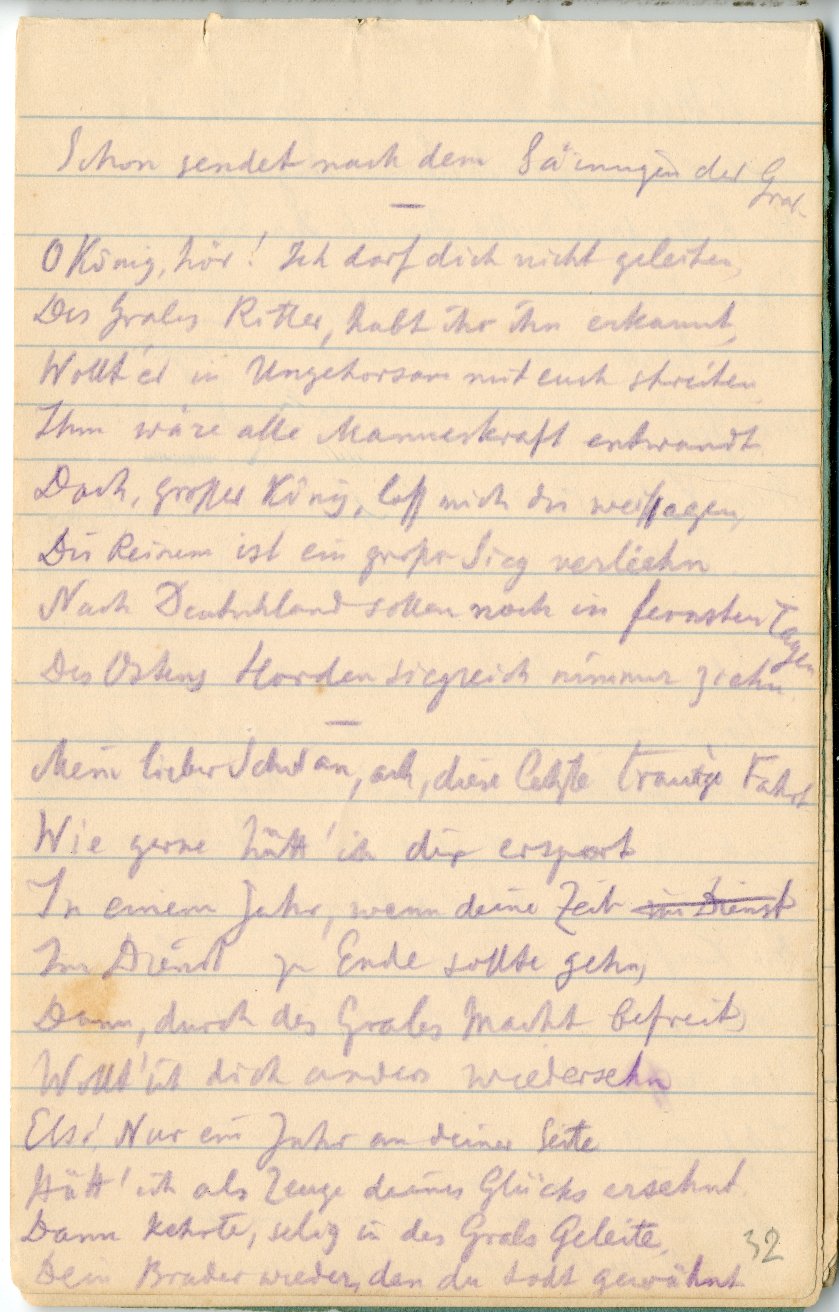 Schon sendet nach dem Säumigen der Gral
—
O König, hör! Ich darf dich nicht geleiten,
Des Grales Ritter, habt ihr ihn erkannt,
Wollt' er in Ungehorsam mit euch streiten,
Ihm wäre alle Manneskraft entwandt
Doch, großer König, laß mich dir weissagen,
Dir Reinem ist ein großer Sieg verliehn
Nach Deutschland sollen noch in fernsten Tagen
Des Ostens Horden siegreich nimmer ziehn.
—
Mein lieber Schwan, ach, diese letzte traur'ge Fahrt
Wie gerne hätt' ich dir erspart
In einem Jahr, wenn deine Zeit im Dienst
Im Dienst zu Ende sollte gehn,
Dann, durch des Grales Macht befreit,
Wollt' ich dich anders wiedersehn
Elsa! Nur ein Jahr an deiner Seite
Hätt' ich als Zeuge deines Glücks ersehnt
Dann kehrte, selig in des Grals Geleite,
Dein Bruder wieder, den du todt gewähnt
32